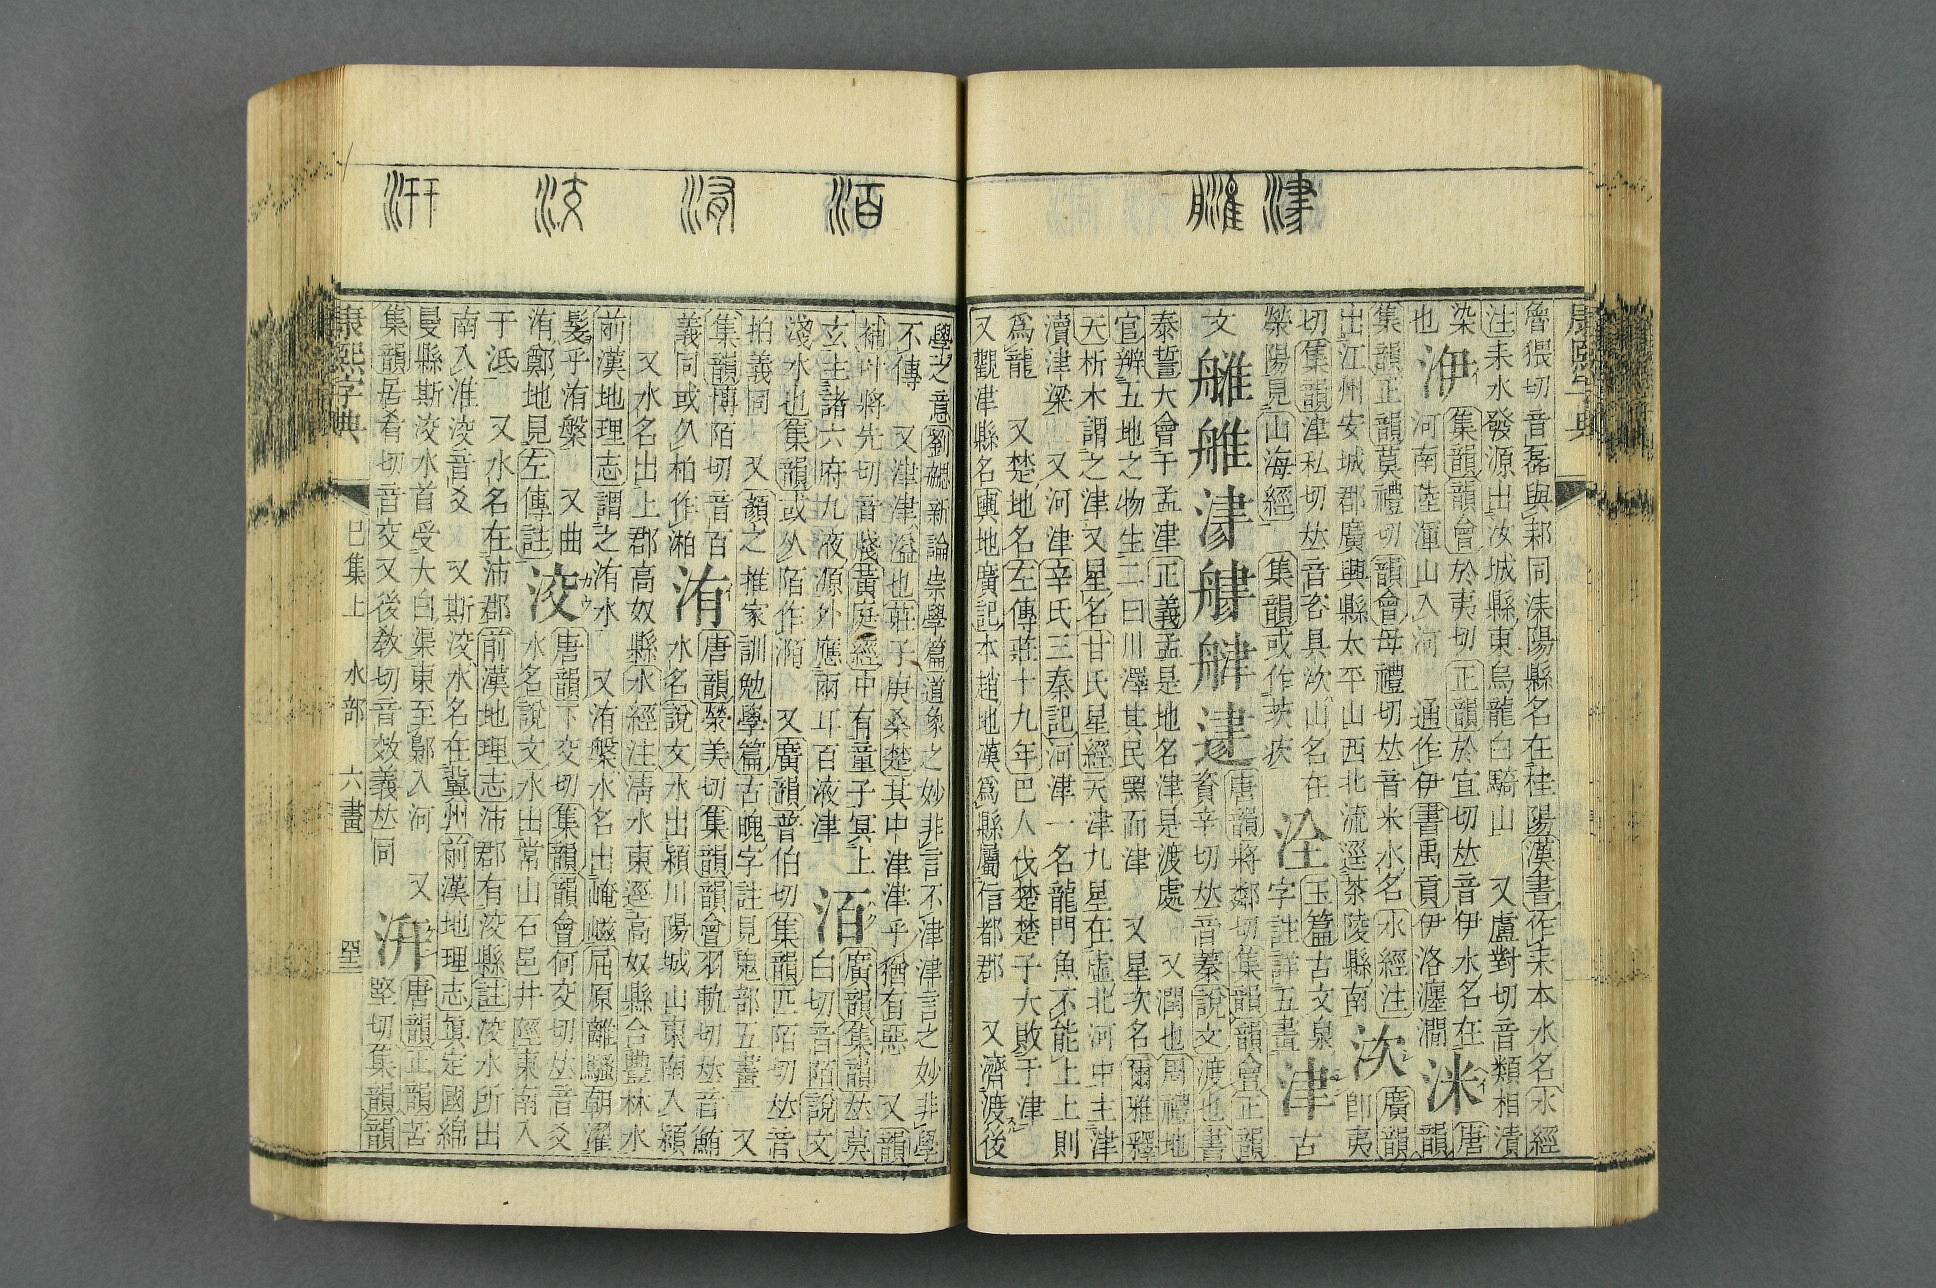 康熙字典
魯猥切音磊與同洡陽縣名在桂陽漢書作耒本水名水經
注耒水發源出汝城縣東烏龍白騎山 又盧對切音類相漬
染
也
洢
集韻韻會於夷切正韻於宜切𠀤音伊水名在
河南陸渾山入河 通作伊書禹貢伊洛瀍澗
洣
唐
韻
集韻正韻莫禮切韻會母禮切𠀤音米水名水經注
出江州安城郡廣興縣太平山西北流逕茶陵縣南
廣韻
即夷
切集韻津私切𠀤音咨具山名在
滎陽見山海經 集韻或作
洤
玉篇古文泉
字註詳五畫
津
古
文
唐韻將鄰切集韻韻會正韻
資辛切𠀤音蓁說文渡也書
泰誓大會于孟津正義孟是地名津是渡處 又潤也周禮地
官辨五地之物生三曰川澤其民黑而津 又星次名爾雅釋
天析木謂之津又星名甘氏星經天津九星在虛北河中主津
瀆津梁 又河津辛氏三秦記河津一名龍門魚不能上上則
爲龍 又楚地名左傳莊十九年巴人伐楚楚子大敗于津
又觀津縣名輿地廣記本趙地漢爲縣屬信都郡 又濟渡後
學之意劉勰新論崇學篇道象之妙非言不津津言之妙非學
不傳 又津津溢也莊子庚桑楚其中津津乎猶有惡 又韻
補叶將先切音牋黃庭經中有童子冥上
玄主諸六府九液源外應兩耳百液津
洦
廣韻集韻𠀤莫
白切音陌說文
淺水也集韻或从陌作 又廣韻普伯切集韻匹陌切𠀤音
拍義同 又顏之推家訓勉學篇古魄字註見鬼部五畫 又
集韻博陌切音百
義同或久柏作湘
洧
唐韻榮美切集韻韻會羽軌切𠀤音鮪
水名說文水出潁川陽城山東南入潁
又水名出上郡高奴縣水經注清水東逕高奴縣合豐林水
前漢地理志謂之洧水 又洧槃水名出崦嵫屈原離騷朝濯
髮乎洧槃 又曲
洧鄭地見左傳註
洨
唐韻下交切集韻韻會何交切𠀤音爻
水名說文水出常山石邑井陘東南入
于泜 又水名在沛郡前漢地理志沛郡有洨縣註洨水所出
南入淮洨音爻 又斯洨水名在冀州前漢地理志眞定國綿
曼縣斯洨水首受大白渠東至鄡入河 又
集韻居肴切音交又後敎切音效義𠀤同
汧
唐韻正韻苦
堅切集韻韻
康熙字典 巳集上 水部 六畫